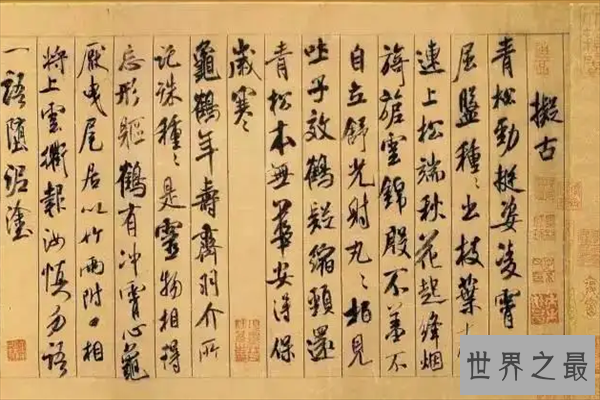 擬古
青松勁挺姿凌霄
屈盤種〻出枝葉
連上松端秋花起絳烟
旖旎雲錦殷不羞不
自立舒光射丸〻柏見
吐子效鶴疑縮頸還
青松本無華安得保
歲寒〻
龜鶴年壽齊羽介所
託殊種〻是靈物相得
忘形軀鶴有冲霄心龜
厭曳尾居以竹兩附口相
將上雲衢報汝慎勿語
一語墮泥塗
世界之最